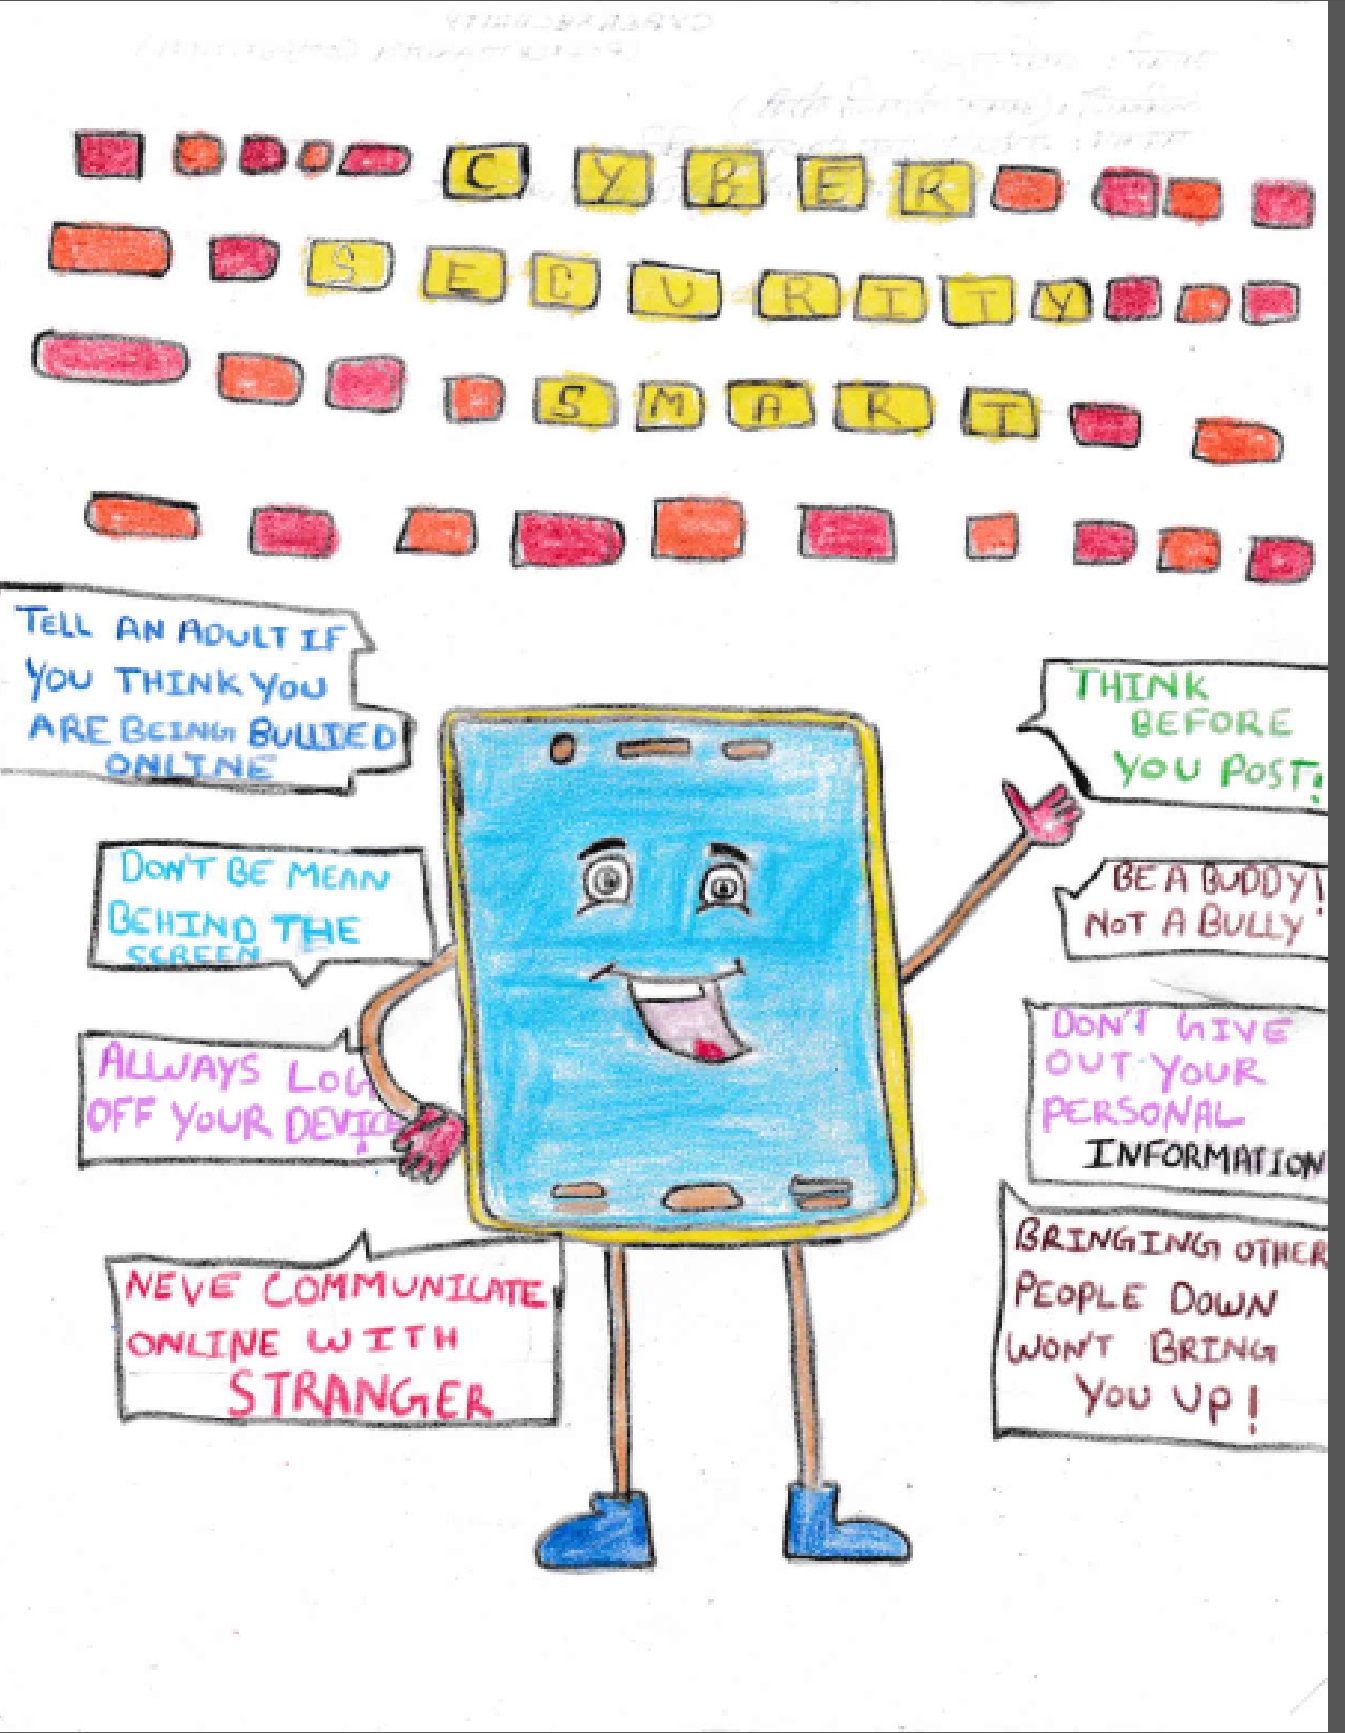 CYBER
SECURITY
SMART
TELL AN ADULT IF
YOU THINK YOU
ARE BEING BULLIED
ONLINE
DON'T BE MEAN
BEHIND THE
SCREEN
ALLWAYS LOG
OFF YOUR DEVICE
NEVE COMMUNICATE
ONLINE WITH
STRANGER
THINK
BEFORE
YOU POST!
BE A BUDDY!
NOT A BULLY
DON'T GIVE
OUT YOUR
PERSONAL
INFORMATION
BRINGING OTHER
PEOPLE DOWN
WON'T BRING
YOU UP!